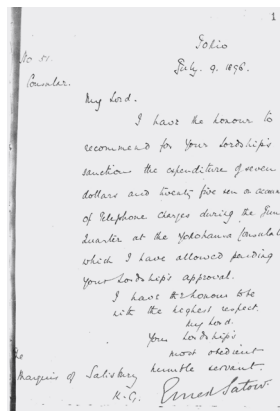 1
Tokio
July. 9. 1896.
No 51.
Consular.
My Lord.
I have the honour to
recommend for Your Lordship's
sanction the expenditure of seven
dollars and twenty five sen on account
of Telephone charges during the June
Quarter at the Yokohama Consulate
which I have allowed pending
Your Lordship's approval.
I have the honour to be
with the highest respect,
My Lord.
Your Lordship's
most obedient
humble servant.
The
Marquis of Salisbury
K.G.
Ernest Satow.